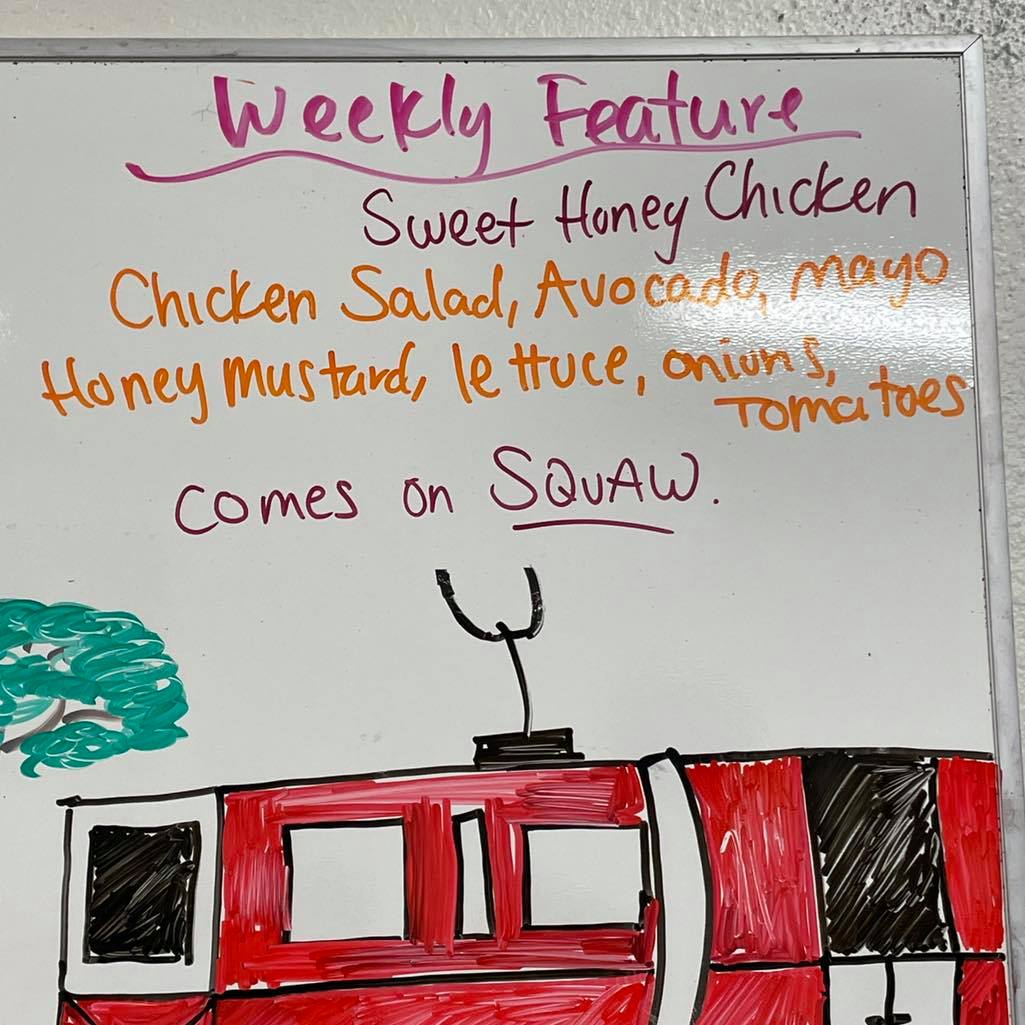 Weekly Feature
Sweet Honey Chicken
Chicken Salad, Avocado, mayo
Honey mustard, lettuce, onions,
Tomatoes
comes on SQUAW.